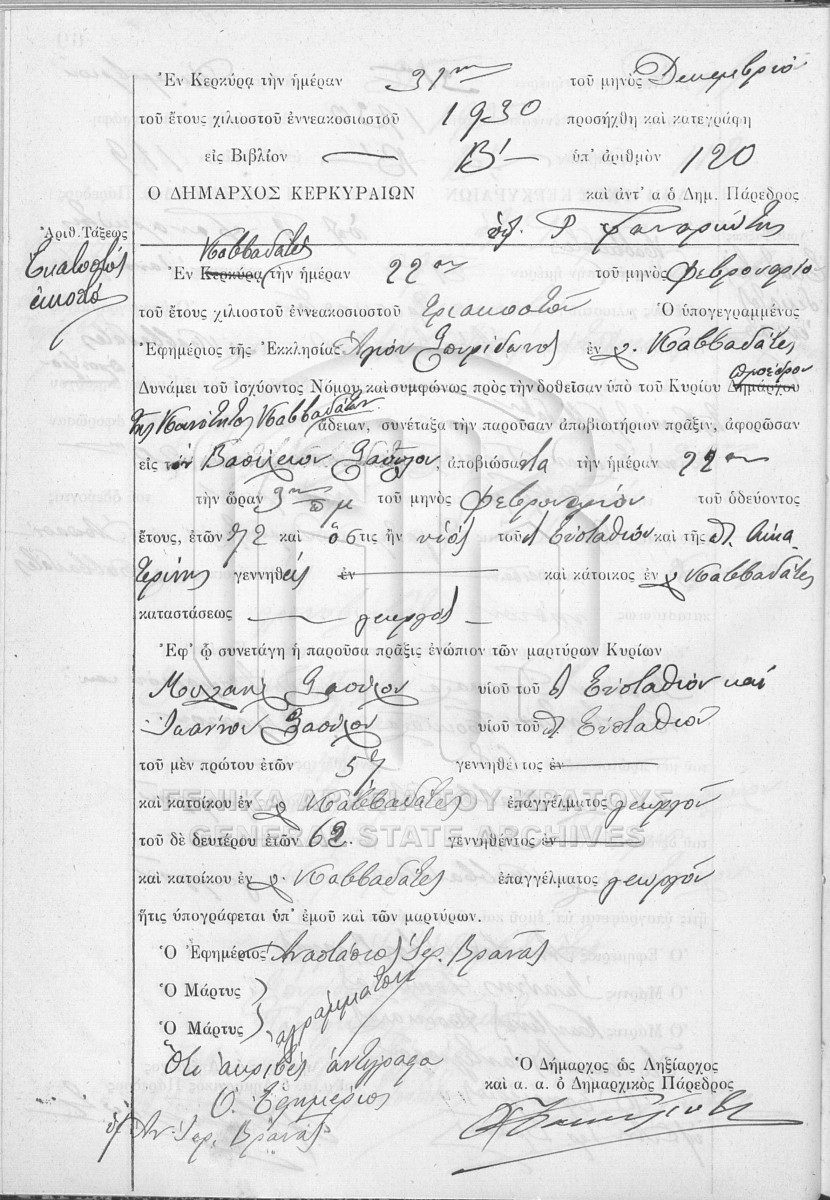 Ἐν Κερκύρᾳ τὴν ἡμέραν 31ην τοῦ μηνὸς Δεκεμβρίου
τοῦ ἔτους χιλιοστοῦ ἐννεακοσιοστοῦ 1930 προσήχθη καὶ κατεγράφη
εἰς Βιβλίον Β' ὑπ' ἀριθμὸν 120
Ο ΔΗΜΑΡΧΟΣ ΚΕΡΚΥΡΑΙΩΝ καὶ ἀντ' α ὁ Δημ. Πάρεδρος
Ἀριθ. Τάξεως
Ἑκατοστός
εἰκοστό
Καββαδάτες
Ἐν Κερκύρᾳ τὴν ἡμέραν 22αν τοῦ μηνὸς Φεβρουαρίου
τοῦ ἔτους χιλιοστοῦ ἐννεακοσιοστοῦ τριακοστοῦ Ὁ ὑπογεγραμμένος
Ἐφημέριος τῆς Ἐκκλησίας Ἁγίου Σπυρίδωνος ἐν χ. Καββαδάτες
Δυνάμει τοῦ ἰσχύοντος Νόμου καὶ συμφώνως πρὸς τὴν δοθεῖσαν ὑπὸ τοῦ Κυρίου Δημάρχου προέδρου
τῆς Κοινότητος Καββαδάτων ἄδειαν, συνέταξα τὴν παροῦσαν ἀποβιωτήριον πρᾶξιν, ἀφορῶσαν
εἰς τὸν Βασίλειον, ἀποβιώσαντα τὴν ἡμέραν 22αν
τὴν ὥραν 3ην πμ τοῦ μηνὸς Φεβρουαρίου τοῦ ὁδεύοντος
ἔτους, ἐτῶν 72 καὶ ὅστις ἦν υἱός τοῦ Εὐσταθίου καὶ τῆς Αἰκα
τερίνης γεννηθείς ἐν καὶ κάτοικος ἐν χ Καββαδάτες
καταστάσεως γεωργός
Ἐφ' ᾧ συνετάγη ἡ παροῦσα πρᾶξις ἐνώπιον τῶν μαρτύρων Κυρίων
υἱοῦ τοῦ Εὐσταθίου καί
Ἰωάννου υἱοῦ τοῦ Εὐσταθίου
τοῦ μὲν πρώτου ἐτῶν 57 γεννηθέντος ἐν
καὶ κατοίκου ἐν χ Καββαδάτες ἐπαγγέλματος γεωργοῦ
ΓΕΝΙΚΑ ΑΡΧΕΙΑ ΤΟΥ ΚΡΑΤΟΥΣ
GENERAL STATE ARCHIVES
τοῦ δὲ δευτέρου ἐτῶν 62. γεννηθέντος ἐν
καὶ κατοίκου ἐν χ. Καββαδάτες ἐπαγγέλματος γεωργοῦ
ἥτις ὑπογράφεται ὑπ' ἐμοῦ καὶ τῶν μαρτύρων.
Ὁ Ἐφημέριος Ἀναστάσιος ἱερ. Βρανᾶς
Ὁ Μάρτυς
Ὁ Μάρτυς ἀγράμματοι
Ὅτι ἀκριβές ἀντίγραφο
Ὁ Ἐφημέριος
Ἀν. ἱερ. Βρανᾶς
Ὁ Δήμαρχος ὡς Ληξίαρχος
καὶ α. α. ὁ Δημαρχικὸς Πάρεδρος